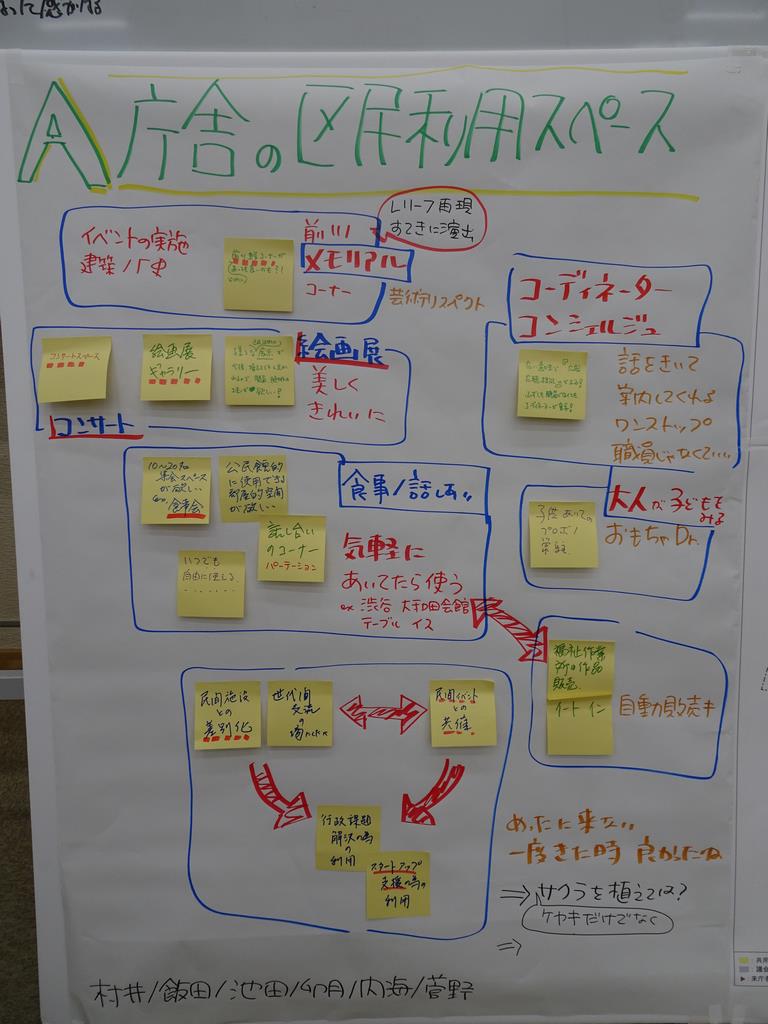 A 庁舎の区民利用スペース
イベントの実施
前川
メモリアル
コーナー
レリーフ再現
すてきに演出
コーディネーター
コンシェルジュ
コンサートスペース
絵画展
ギャラリー
絵画展
美しく
きれいに
コンサート
話をきいて
案内してくれる
ワンストップ
職員じゃなくて…
10〜20名
集会スペースが
欲しい
食事会
公民館的
に使用できる
空間
が欲しい
話し合い
のコーナー
パーテーション
いつでも
自由に使える
食事/話しあい
気軽に
あいてたら使う
ex 渋谷
テーブル イス
大人が子どもを
みる
おもちゃDr.
福祉作業
所の作品
販売
イートイン
民間施設
との
差別化
世代間
交流
の場
民間イベント
との
共催
行政課題
解決の為
の
利用
スタートアップ
支援の為の
利用
めったに来ない
一度きた時 良かったね
⇒サクラを植えては?
ケヤキだけでなく
⇒
村井/飯田/池田/卯月/内海/菅野